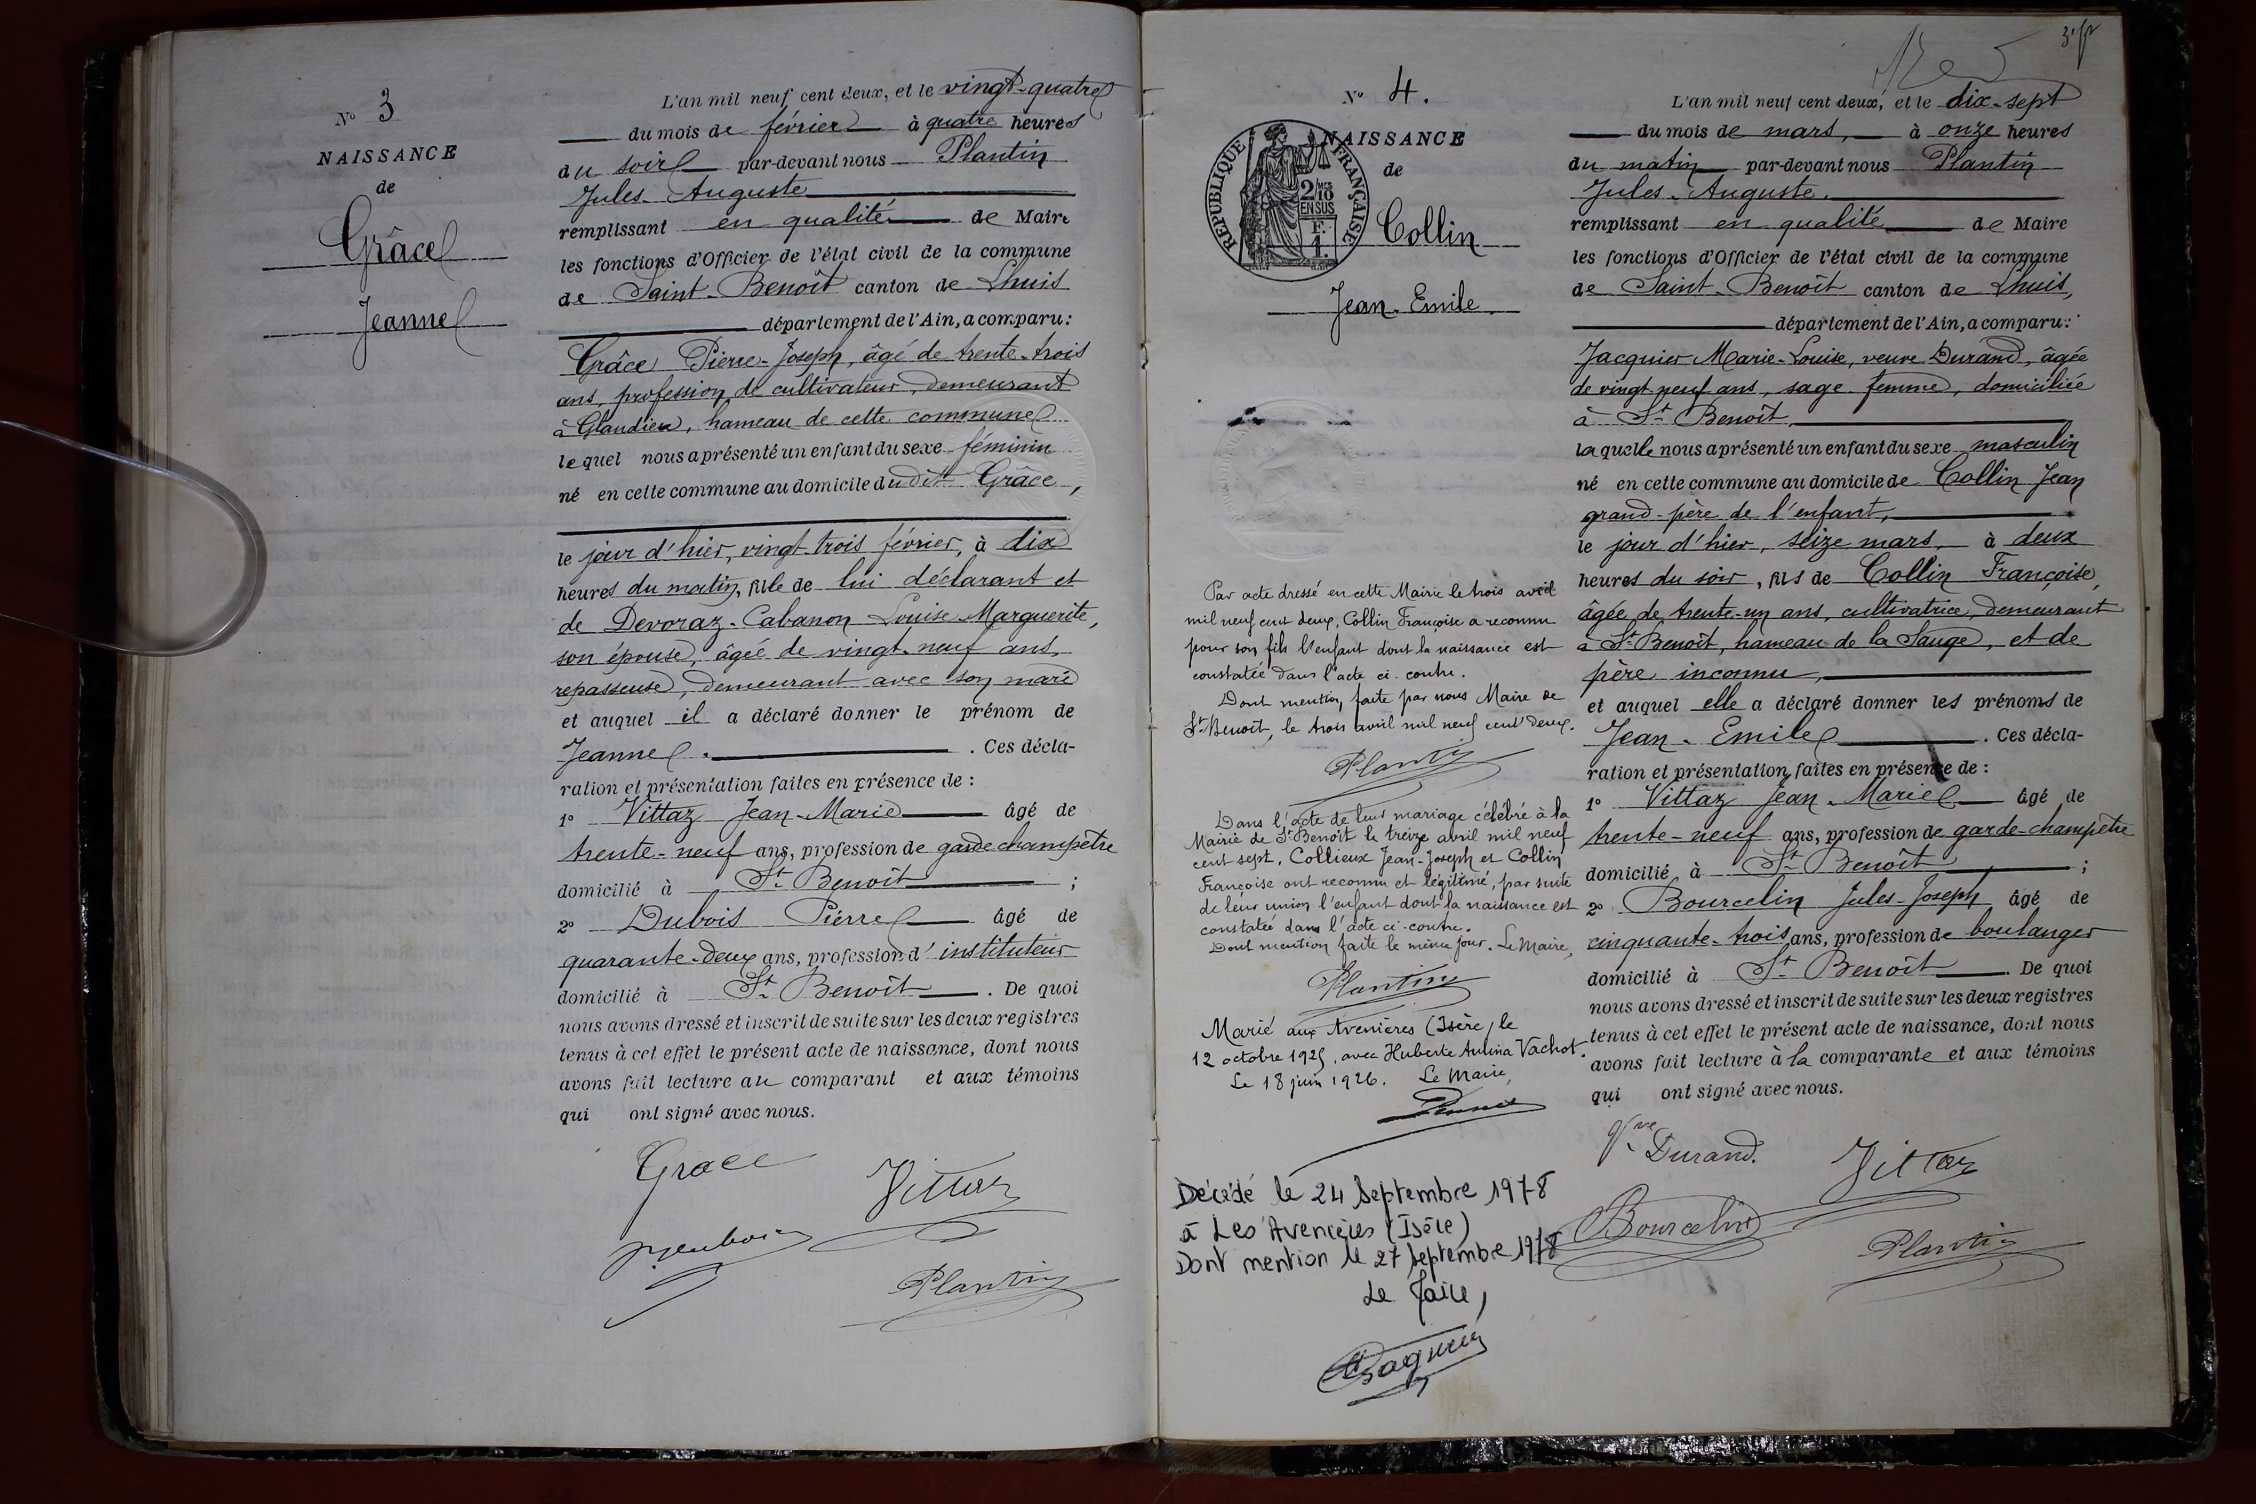 N° 3
NAISSANCE
de
Grâce
Jeanne
L'an mil neuf cent deux, et le vingt-quatre
du mois de février à quatre heures
du soir par-devant nous Plantin
Jules-Auguste
remplissant en qualité de Maire
les fonctions d'Officier de l'état civil de la commune
de Saint-Benoît canton de Lhuis
département de l'Ain, a comparu :
Grâce Pierre-Joseph, âgé de trente-trois
ans, profession de cultivateur, demeurant
à Glandieu, hameau de cette commune
lequel nous a présenté un enfant du sexe féminin
né en cette commune au domicile dudit Grâce,
le jour d'hier, vingt-trois février, à dix
heures du matin, fille de lui déclarant et
de Devoraz-Cabanon Louise Marguerite,
son épouse, âgée de vingt-neuf ans,
repasseuse, demeurant avec son mari
et auquel il a déclaré donner le prénom de
Jeanne. . Ces décla-
ration et présentation faites en présence de :
1° Vittaz Jean-Marie âgé de
trente-neuf ans, profession de garde champêtre
domicilié à St Benoît ;
2° Dubois Pierre âgé de
quarante-deux ans, profession d'instituteur
domicilié à St Benoît . De quoi
nous avons dressé et inscrit de suite sur les deux registres
tenus à cet effet le présent acte de naissance, dont nous
avons fait lecture au comparant et aux témoins
qui ont signé avec nous.
Grace
Vittaz
Plantin
N° 4.
NAISSANCE
de
Collin
Jean-Emile.
RÉPUBLIQUE FRANÇAISE
2/10
EN SUS
F.
1.
Par acte dressé en cette Mairie le trois avril
mil neuf cent deux, Collin Françoise a reconnu
pour son fils l'enfant dont la naissance est
constatée dans l'acte ci-contre.
Dont mention faite par nous Maire de
St Benoît, le trois avril mil neuf cent deux.
Plantin
Dans l'acte de leur mariage célébré à la
Mairie de St Benoît le treize avril mil neuf
cent sept, Collieux Jean-Joseph et Collin
Françoise ont reconnu et légitimé, par suite
de leur union l'enfant dont la naissance est
constatée dans l'acte ci-contre.
Dont mention faite le même jour. Le Maire,
Plantin
Marié aux Avenières (Isère) le
12 octobre 1925, avec Huberte Vachot.
Le 18 juin 1926. Le Maire,
Décédé le 24 Septembre 1978
à Les Avenières (Isère)
Dont mention le 27 Septembre 1978
Le Maire,
L'an mil neuf cent deux, et le dix-sept
du mois de mars, à onze heures
du matin par-devant nous Plantin
Jules-Auguste.
remplissant en qualité de Maire
les fonctions d'Officier de l'état civil de la commune
de Saint-Benoît canton de Lhuis,
département de l'Ain, a comparu :
Jacquier Marie-Louise, veuve Durand, âgée
de vingt neuf ans, sage-femme, domiciliée
à St Benoît,
laquelle nous a présenté un enfant du sexe masculin
né en cette commune au domicile de Collin Jean
grand-père de l'enfant,
le jour d'hier, seize mars, à deux
heures du soir, fils de Collin Françoise,
âgée de trente-un ans, cultivatrice, demeurant
à St Benoît, hameau de la Sauge, et de
père inconnu,
et auquel elle a déclaré donner les prénoms de
Jean-Emile . Ces décla-
ration et présentation faites en présence de :
1° Vittaz Jean-Marie âgé de
trente-neuf ans, profession de garde-champêtre
domicilié à St Benoît ;
2° Bourcelin Jules-Joseph âgé de
cinquante-trois ans, profession de boulanger
domicilié à St Benoît . De quoi
nous avons dressé et inscrit de suite sur les deux registres
tenus à cet effet le présent acte de naissance, dont nous
avons fait lecture à la comparante et aux témoins
qui ont signé avec nous.
Vve Durand.
Vittaz
Bourcelin
Plantin